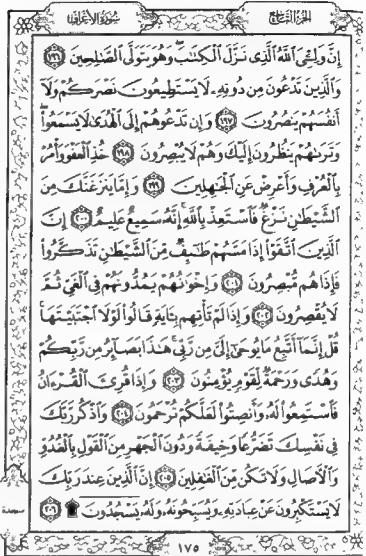 الجزء التاسع
سورة الأعراف
إِنَّ وَلِـِّۧىَ ٱللَّهُ ٱلَّذِى نَزَّلَ ٱلْكِتَٰبَ ۖ وَهُوَ يَتَوَلَّى ٱلصَّٰلِحِينَ ١٩٦
وَٱلَّذِينَ تَدْعُونَ مِن دُونِهِۦ لَا يَسْتَطِيعُونَ نَصْرَكُمْ وَلَآ
أَنفُسَهُمْ يَنصُرُونَ ١٩٧ وَإِن تَدْعُوهُمْ إِلَى ٱلْهُدَىٰ لَا يَسْمَعُوا۟ ۖ
وَتَرَىٰهُمْ يَنظُرُونَ إِلَيْكَ وَهُمْ لَا يُبْصِرُونَ ١٩٨ خُذِ ٱلْعَفْوَ وَأْمُرْ
بِٱلْعُرْفِ وَأَعْرِضْ عَنِ ٱلْجَٰهِلِينَ ١٩٩ وَإِمَّا يَنزَغَنَّكَ مِنَ
ٱلشَّيْطَٰنِ نَزْغٌ فَٱسْتَعِذْ بِٱللَّهِ ۚ إِنَّهُۥ سَمِيعٌ عَلِيمٌ ٢٠٠ إِنَّ
ٱلَّذِينَ ٱتَّقَوْا۟ إِذَا مَسَّهُمْ طَٰٓئِفٌ مِّنَ ٱلشَّيْطَٰنِ تَذَكَّرُوا۟
فَإِذَا هُم مُّبْصِرُونَ ٢٠١ وَإِخْوَٰنُهُمْ يَمُدُّونَهُمْ فِى ٱلْغَىِّ ثُمَّ
لَا يُقْصِرُونَ ٢٠٢ وَإِذَا لَمْ تَأْتِهِم بِـَٔايَةٍ قَالُوا۟ لَوْلَا ٱجْتَبَيْتَهَا ۚ
قُلْ إِنَّمَآ أَتَّبِعُ مَا يُوحَىٰٓ إِلَىَّ مِن رَّبِّى ۚ هَٰذَا بَصَآئِرُ مِن رَّبِّكُمْ
وَهُدًى وَرَحْمَةٌ لِّقَوْمٍ يُؤْمِنُونَ ٢٠٣ وَإِذَا قُرِئَ ٱلْقُرْءَانُ
فَٱسْتَمِعُوا۟ لَهُۥ وَأَنصِتُوا۟ لَعَلَّكُمْ تُرْحَمُونَ ٢٠٤ وَٱذْكُر رَّبَّكَ
فِى نَفْسِكَ تَضَرُّعًا وَخِيفَةً وَدُونَ ٱلْجَهْرِ مِنَ ٱلْقَوْلِ بِٱلْغُدُوِّ
وَٱلْءَاصَالِ وَلَا تَكُن مِّنَ ٱلْغَٰفِلِينَ ٢٠٥ إِنَّ ٱلَّذِينَ عِندَ رَبِّكَ
لَا يَسْتَكْبِرُونَ عَنْ عِبَادَتِهِۦ وَيُسَبِّحُونَهُۥ وَلَهُۥ يَسْجُدُونَ ۩ ٢٠٦
سجدة
١٧٥